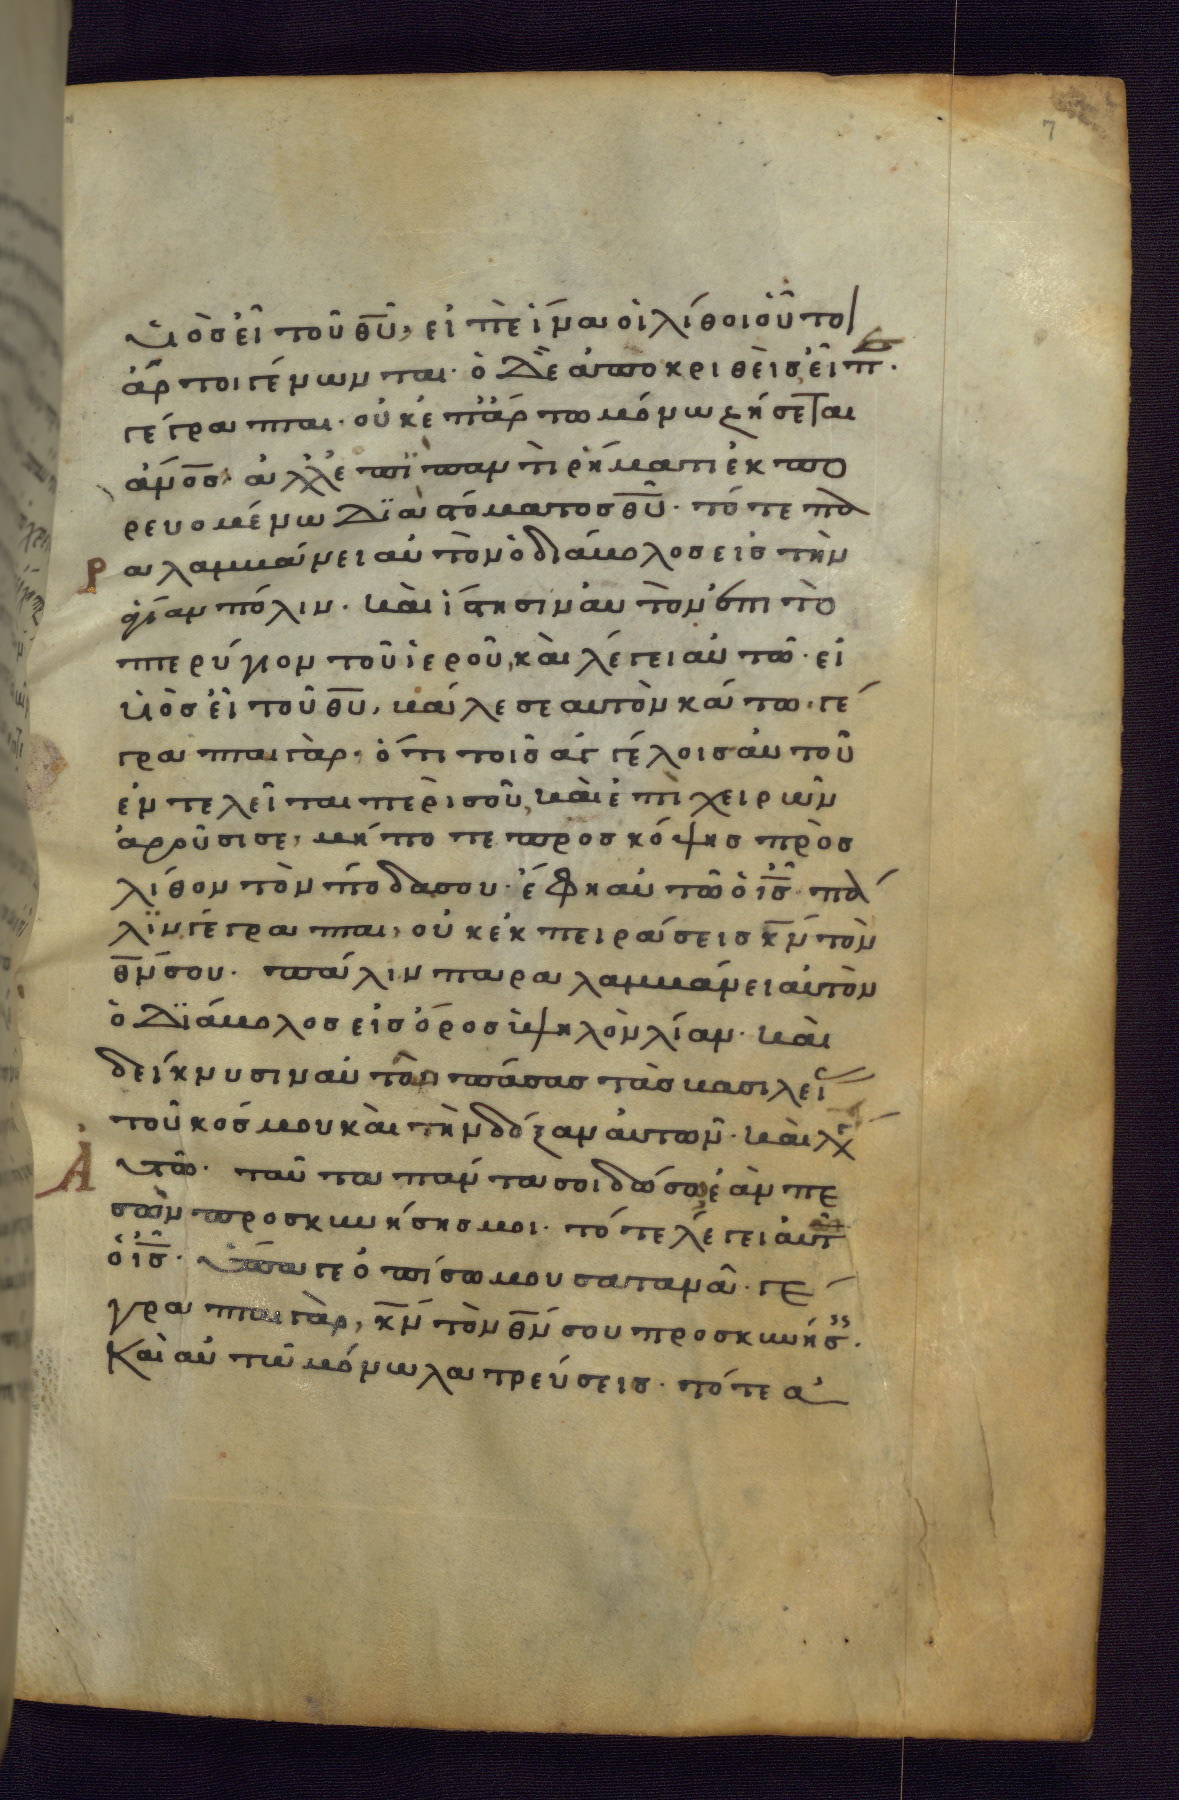 7
υἱὸσ εἶ τοῦ θ̅υ̅, εἰπὲ ἵνα οἱ λίθοι οὗτοι
ἄρτοι γένωνται· ὁ δὲ ἀποκριθεὶσ εἶπ·
γέγραπται· οὐκ ἐπ ἄρτω μόνω ζήσεται
ἄν̅ο̅σ̅· ἀλλ ἐπϊ παντὶ ῥήματι ἐκπο
ρευομένω δϊα στόματοσ θ̅υ̅· τότε πα
ραλαμβάνει αὐτὸν ὁ διάβολοσ εἰσ τὴν
ἁγίαν πόλιν· καὶ ἵστησιν αὐτὸν ἐπι τὸ
πτερύγιον τοῦ ἱεροῦ, καὶ λέγει αὐτῶ· εἰ
υἱὸσ εἶ τοῦ θ̅υ̅, βάλε σεαυτὸν κάτω· γέ
γραπται γὰρ, ὅτι τοῖσ ἀγγέλοισ αὐτοῦ
ἐντελεῖται περὶ σοῦ, καὶ ἐπὶ χειρῶν
ἀροῦσι σε, μήποτε προσκόψησ πρὸσ
λίθον τὸν πόδα σου· ἔφη αὐτῶ ὁ ι̅σ̅· πά
λϊν γέγραπται, οὐκ ἐκπειράσεισ κ̅ν̅ τὸν
θ̅ν̅ σου· πάλιν παραλαμβάνει αὐτὸν
ὁ δϊάβολοσ εἰσ ὄροσ ὑψηλὸν λίαν· καὶ
δείκνυσιν αὐτῶ πάσασ τὰσ βασιλεί
τοῦ κόσμου καὶ τὴν δόξαν αὐτῶν· καὶ λέγ
Αὐτῶ· ταῦτα πάντα σοι δώσω ἐὰν πε
σὼν προσκυνήσησ μοι· τότε λέγει αὐτ
ὁ ι̅σ̅· ὕπαγε ὀπίσω μου σατανᾶ· γέ
γραπται γὰρ, κ̅ν̅ τὸν θ̅ν̅ σου προσκυνήσ·
Καὶ αὐτῶ μόνω λατρεύσεισ· τότε ἀ